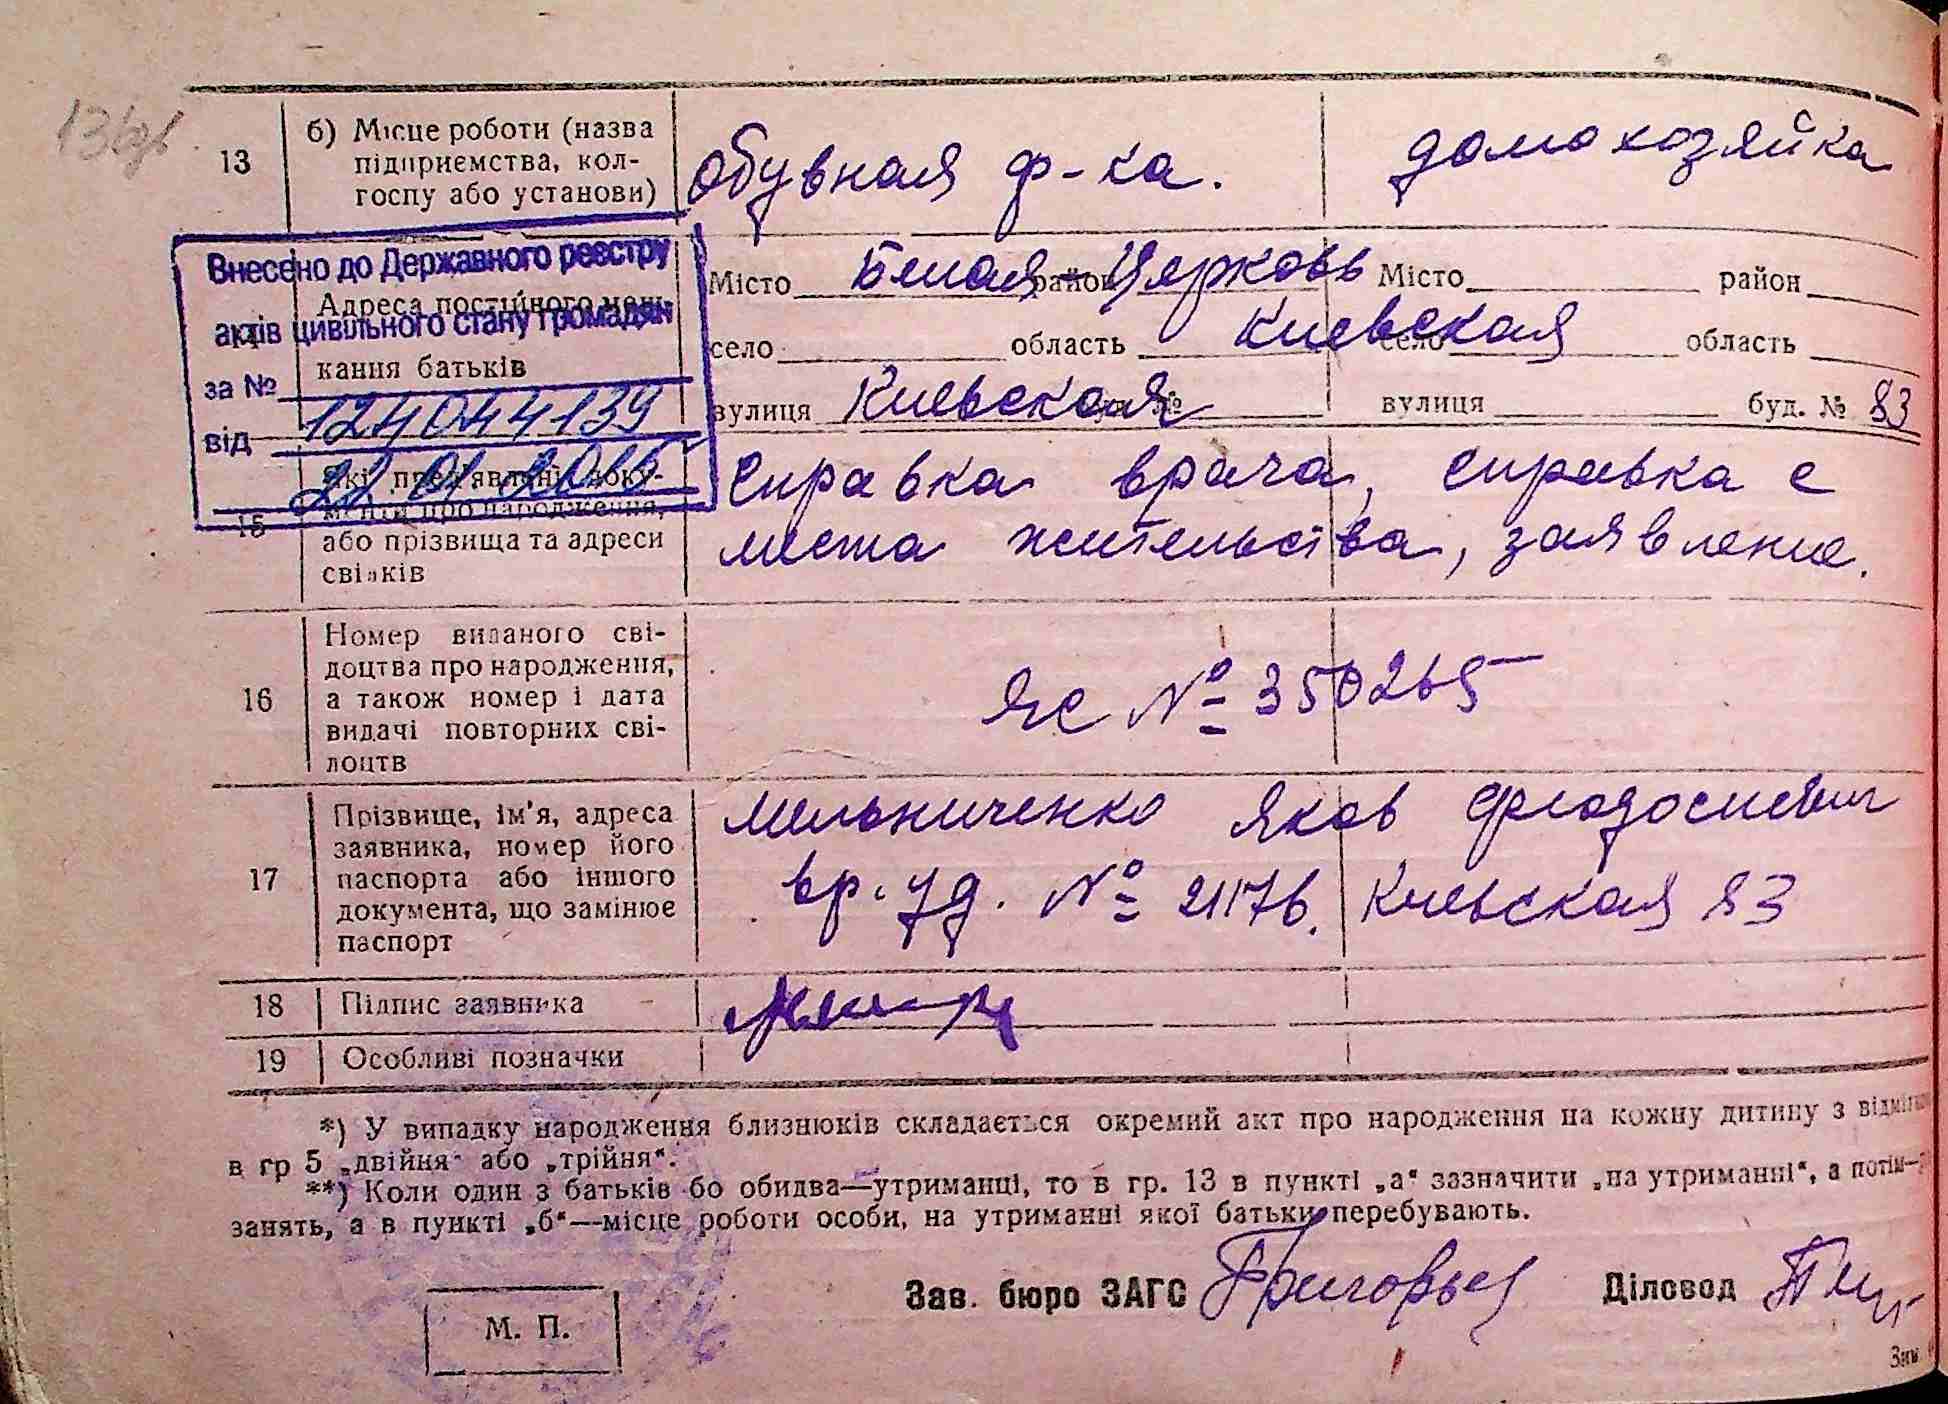 13об
13
б) Місце роботи (назва
підприємства, кол-
госпу або установи)
обувная ф-ка.
домохозяйка
Внесено до Державного реєстру
актів цивільного стану громадян
за № 124044139
від 22 01 2015
14
Адреса постійного меш-
кання батьків
Місто Белая-Церковь район
село область Киевская
вулиця Киевская буд. №
Місто район
село область
вулиця буд. № 83
15
Які пред'явлені доку-
менти про народження,
або прізвища та адреси
свідків
Справка врача, справка с
места жительства, заявление.
16
Номер виданого сві-
доцтва про народження,
а також номер і дата
видачі повторних сві-
доцтв
ЯС № 350265
17
Прізвище, ім'я, адреса
заявника, номер його
паспорта або іншого
документа, що замінює
паспорт
Мельниченко Яков Феодосиевич
вр. уд. № 21176. Киевская 83
18
Підпис заявника
19
Особливі позначки
*) У випадку народження близнюків складається окремий акт про народження на кожну дитину з відміткою
в гр 5 „двійня" або „трійня".
**) Коли один з батьків бо обидва—утриманці, то в гр. 13 в пункті „а" зазначити „на утриманні", а потім—
занять, а в пункті „б"—місце роботи особи, на утриманні якої батьки перебувають.
М. П.
Зав. бюро ЗАГС Григорьев
Діловод